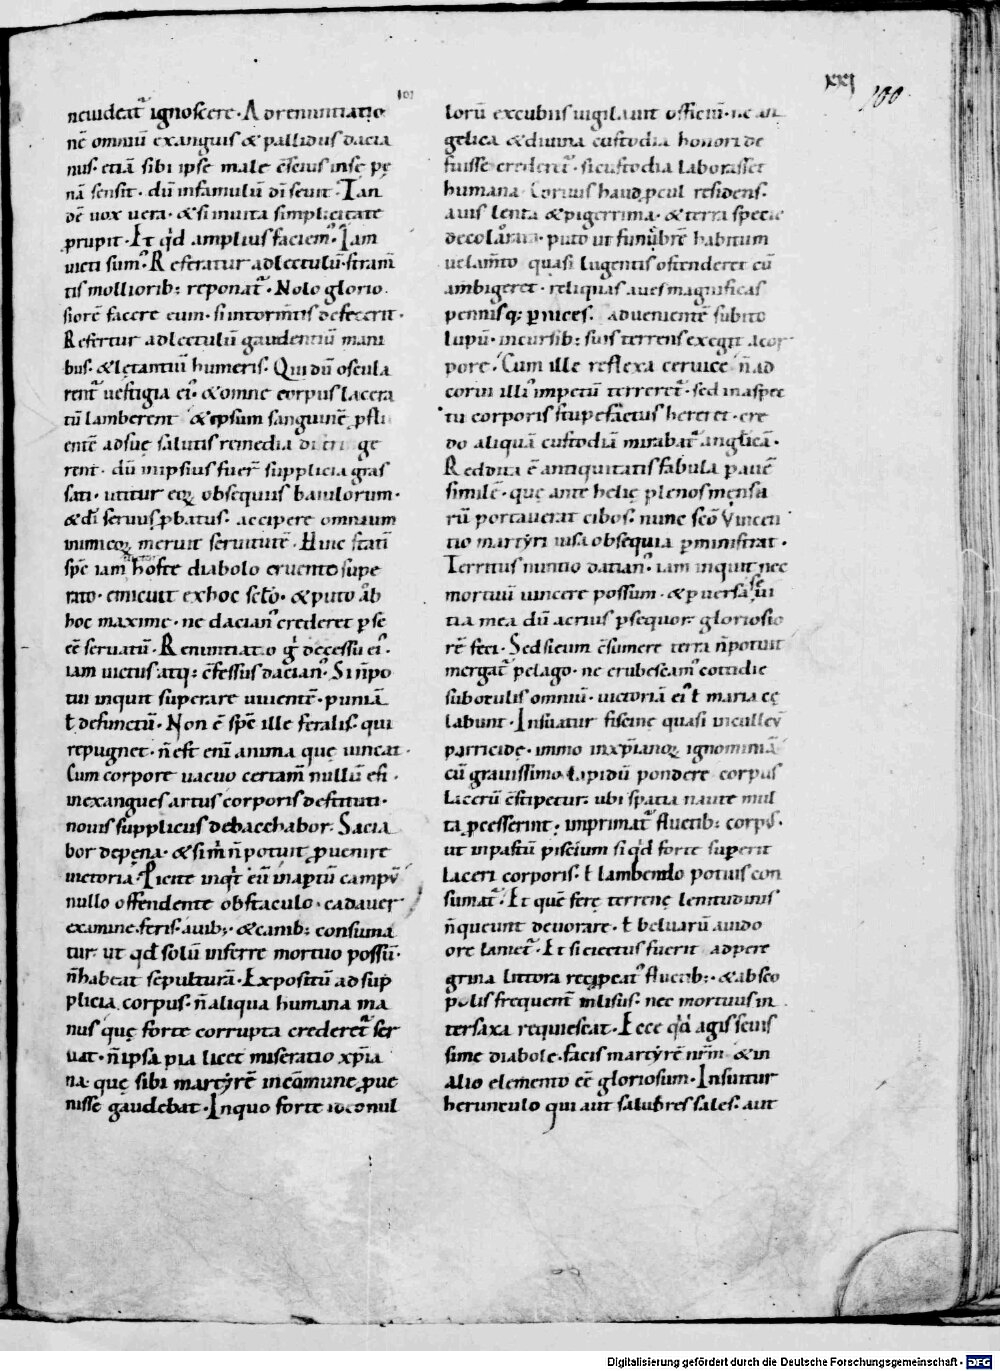 xxj
100
101
ne uideat᷑ ignoscere · Ad renuntiatio
nē omniū exanguis & pallidus dacia
nus · etiā sibi ipse male c̄scius in se pę
nā sensit · dū in famulum dī seuit · Tan
dē uox uera · & si inuita simplicitate
ꝓrupit · Et qͥd amplius faciemꝰ · Iam
uicti sumꝰ · Referatur ad lectulū · stram̄
tis mollioribꝫ reponat᷑ · Nolo glorio
siorē facere eum · si in torm̄tis defecerit ·
Refertur ad lectulū gaudentiū mani
bus · & lętantiū humeris · Qui dū oscula
rent᷑ uestigia eiꝰ · & omne corpus lacera
tū lamberent & ipsum sanguinē ꝓflu
entē ad suę salutis remedia
rent · dū in ipsius fuer̄ supplicia gras
sati · utitur eoꝝ obsequiis baiulorum ·
& dī seruus ꝓbatus · accipere omnium
inimicoꝝ meruit seruitutē · Hinc statī
spē iam hoste diabolo cruento supe
rato · emicuit ex hoc sc̄lo · & puto ab
hoc maxime · ne dacianꝰ crederet ꝑ se
eē seruatū · Renuntiato gͦ decessu eiꝰ ·
iam uictus atqꝫ c̄fessus dacianꝰ · Si n̄ po
tui inquit superare uiuentē · puniā
ł defunctū · Non ē spē ille feralis · qui
repugnet · n̄ est enī anima quę uincat ·
Cum corpore uacuo certam̄ nullū est ·
in exangues artus corporis destituti ·
nouis suppliciis debacchabor · Sacia
bor de pęna · & si mͥ n̄ potuit ꝓuenire
uictoria · Picite inqͥt eū in aꝑtū campū
nullo offendente obstaculo · cadauer
examine · feris · auibꝫ · & canibꝫ consuma
tur · ut qđ solū inferre mortuo possū ·
n̄ habeat sepulturā · Expositū ad sup
plicia corpus · n̄ aliqua humana ma
nus quę forte corrupta crederet᷑ ser
uat · n̄ ipsa pia licet miseratio xp̄ia
na · quę sibi martyrē in cōmune ꝓue
nisse gaudebat · In quo forte locο nul
lorū excubiis uigilauit officiū · ne an
gelica & diuina custodia honori de
fuisse crederet᷑ · si custodia laborasset
humana · Coruus haud ꝓcul residens ·
auis lenta & pigerrima · & tetra specie
decolorata · puto ut funebrē habitum
uelam̄to quasi lugentis ostenderet cū
ambigeret · reliquas aues magnificas
pennisqꝫ ꝑnices · aduenientē subito
lupū · incursibꝫ suis terrens exegit a cor
pore · Cum ille reflexa ceruice n̄ ad
corui illiꝰ impetū terreret᷑ · sed in aspec
tu corporis stupefactus hereret · cre
do aliquā custodiā mirabat᷑ anglicā ·
Reddita ē antiquitatis fabula pauē
similē · quę ante helię plenos mensa
rū portauerat cibos · nunc sc̄o Vincen
tio martyri iusa obsequia ꝑministrat ·
Territus nuntio dacianꝰ · iam inquit nec
mortuū uincere possum · & puersa seui
tia mea dū acrius ꝑsequor · gloriosio
rē feci · Sed si eum c̄sumere terra n̄ potuit
mergat᷑ pelago · ne erubescamꝰ cottidie
sub oculis omniū · uictoriā eiꝰ ł maria cę
labunt · Insuatur fiscine quasi in culleū
parricidę · immo in xp̄ianoꝝ ignominiā
cū grauissimo lapidū pondere corpus
lacerū c̄stipetur · ubi spatia naute mul
ta ꝓcesserint · imprimat᷑ fluctibꝫ corpꝰ ·
ut in pastū piscium si qͥd forte superit
laceri corporis · ł lambendo potius con
sumat᷑ · Et quē ferę terrenę lenitudinis
n̄ queunt deuorare · ł beluarū auido
ore laniet᷑ · Et si eiectus fuerit ad pere
grina littora reciꝑcat᷑ fluctibꝫ · & abseo
polis frequent᷑ inlisus · nec mortuus in
ter saxa requiescat · Ecce qͥd agis seuis
sime diabole · facis martyrē nr̄m & in
alio elemento eē gloriosum · Insuitur
herunculo qui aut salubres sales · aut
Digitalisierung gefördert durch die Deutsche Forschungsgemeinschaft - DFG